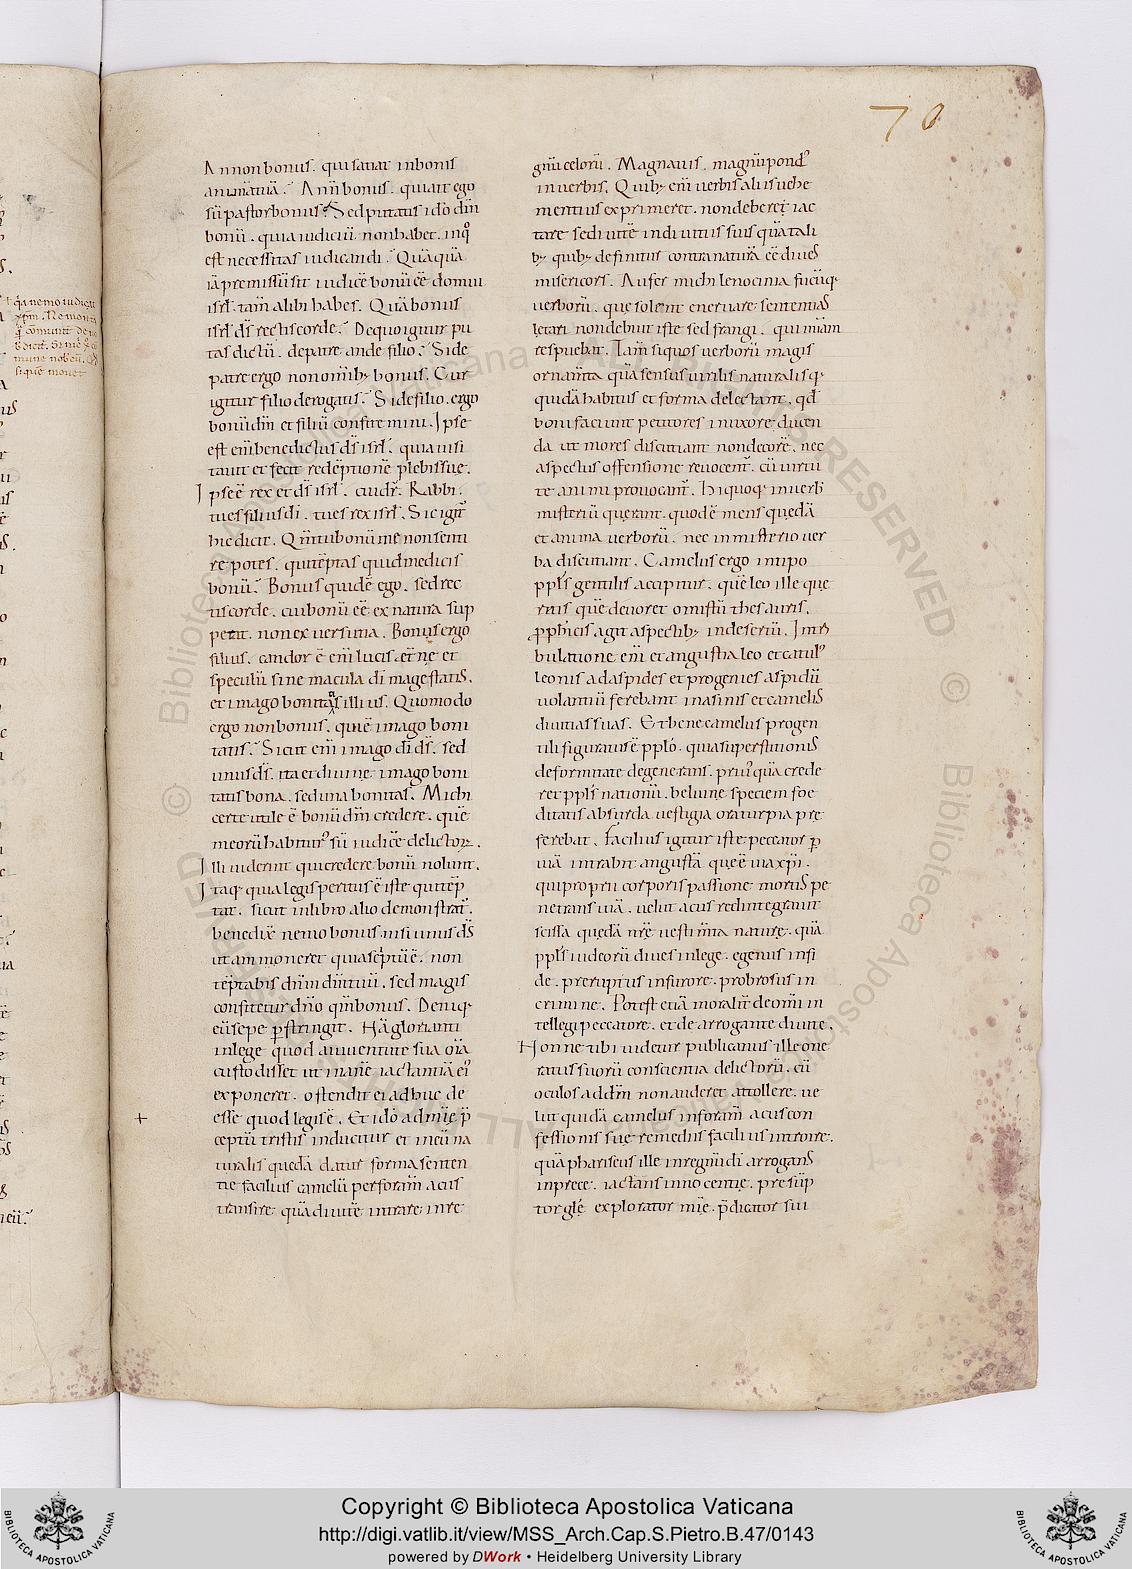 70
An non bonus. qui satiat inbonis
animātuā. An ñ bonus. quiait ego
sū pastorbonus. Sedputatis idō dn̄m
bonū. quia iudiciū nonhabet. inq°
est necessitas iudicandi. Quāquā
iā premissūsit iudicē bonū eē domui
isrl. tam̄ alibi habes. Quābonus
isrl ds̄ rectiscorde. Dequo igitur pu
tas dictū. depatre ande filio. Side
patre ergo nonomīb; bonus. Cur
igitur filio derogatis. Sidefilio. ergo
bonū dn̄m et filiū confitemini. Ipse
est em̄ benedictus ds̄ isrl. quia uisi
tauit et fecit redēptionē plebissuę.
Ipseē rex et ds̄ isrl. cui dr̄. Rabbi.
tues filius dī. tues rex isrl. Sic igit̄
hic dicit. Qm̄ tubonū me nonsenti
re potes. qui tēptas quid me dicis
bonū. Bonus quidē ego. sed rec
tiscorde. cui bonū eē ex natura sup
petit. non ex uersutia. Bonus ergo
filius. candor ē em̄ lucis. ętnę et
speculū sine macula dī magestatis.
et imago bonitatis illius. Quomodo
ergo nonbonus. quiē imago boni
tatis. Sicut em̄ imago dī ds̄. sed
unus ds̄. ita et diuinę imago boni
tatis bona. sed una bonitas. Michi
certe utile ē bonū dn̄m credere. quē
meorū habitur° sū iudicē delictorꝝ.
Illi uiderint qui credere bonū nolunt.
Itaq; quia legis peritus ē iste qui tēp
tat. sicut inlibro alio demonstrat̄.
benedixit nemo bonus. nisi unus ds̄
ut ammoneret quia sc̄ptū ē. non
tēptabis dn̄m dm̄ tuū. sed magis
confitetur dn̄o qm̄ bonus. Deniq;
eū sepe p̄stringit. Hā glorianti
inlege quod a iuuentute sua om̄ia
custodisset ut inanē iactantiā ei°
exponeret. ostendit ei adhuc de
esse quod legis ē. Et idō ad mīę p̄
+
ceptū tristis inducitur et in eū na
turalis quędā datur forma senten
tię facilius camelū per foram̄ acus
transire. quā diuitē intrare in re
gnū celorū. Magnauis. magnū pond°
in uerbis. Quib; em̄ uerbis aliis uehe
mentius exprimeret. non deberet iac
tare se diuitē in diuitiis suis quā tali
b; quib; definitus contra naturā eē diues
misericors. Aufer michi lenocinia fucūq;
uerborū. quę solent eneruare sententias
lętari non debuit iste sed frangi. qui mīam
respuebat. Iam̄ si quos uerborū magis
ornam̄ta quā sensus uirilis naturalisq;
quidā habitus et forma delectant. qd̄
boni faciunt petitores in uxore ducen
da ut mores discutiant non decorē. nec
aspectus offensione reuocent̄. cū uirtu
te animi prouocant̄. hi quoq; in uerb
misteriū querant. quod ē mens quędā
et anima uerborū. nec in misterio uer
ba discutiant. Camelus ergo in tipo
ppls̄ gentilis accipitur. quē leo ille que
rens quē deuoret omisit̄ū thesauris.
p̄ph̄icis agit aspectib; in desertū. In tri
bulatione em̄ et angustia leo et catul°
leonis ad aspides et progenies aspidū
uolantiū ferebant in asinis et camelis
diuitias suas. Et bene camelus progen
tili figuratus ē pplo. quia superstitionis
deformitate degenerans. pri°quā crede
ret ppls̄ nationū. beluinę speciem foe
ditatis absurda uestigia oratur pia pre
ferebat. Facilius igitur iste peccator p
uiā intrabit angustā quę ē uia xp̄i.
qui proprii corporis passione mortis pe
netrans uiā. uelut acus redintegrauit
scissa quędā nrę uestim̄ta naturę. quā
ppls̄ iudeorū diues in lege. egenus in fi
de. preruptus in furore. probrosus in
crimine. Potest etiā moralit̄ de om̄i in
tellegi peccatore. et de arrogante diuite.
Nonne tibi uidetur publicanus ille one
ratus suorū conscientia delictorū. cū
oculos ad dn̄m non auderet attollere. ue
lut quidā camelus in foram̄ acus con
fessionis suę remediis facilius introire.
quā phariseus ille in regnū dī arrogans
in prece. iactans innocentię. presūp
tor glę. explorator mīę. p̄dicator sui
Copyright © Biblioteca Apostolica Vaticana
http://digi.vatlib.it/view/MSS_Arch.Cap.S.Pietro.B.47/0143
powered by DWork • Heidelberg University Library
BIBLIOTECA APOSTOLICA VATICANA